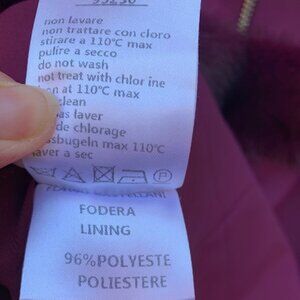 non lavare
non trattare con cloro
stirare a 110°C max
pulire a secco
do not wash
not treat with chlor ine
on at 110°C max
clean
as laver
de chlorage
ssbugeln max 110°C
laver a sec
P
FODERA
LINING
96%POLYESTE
POLIESTERE